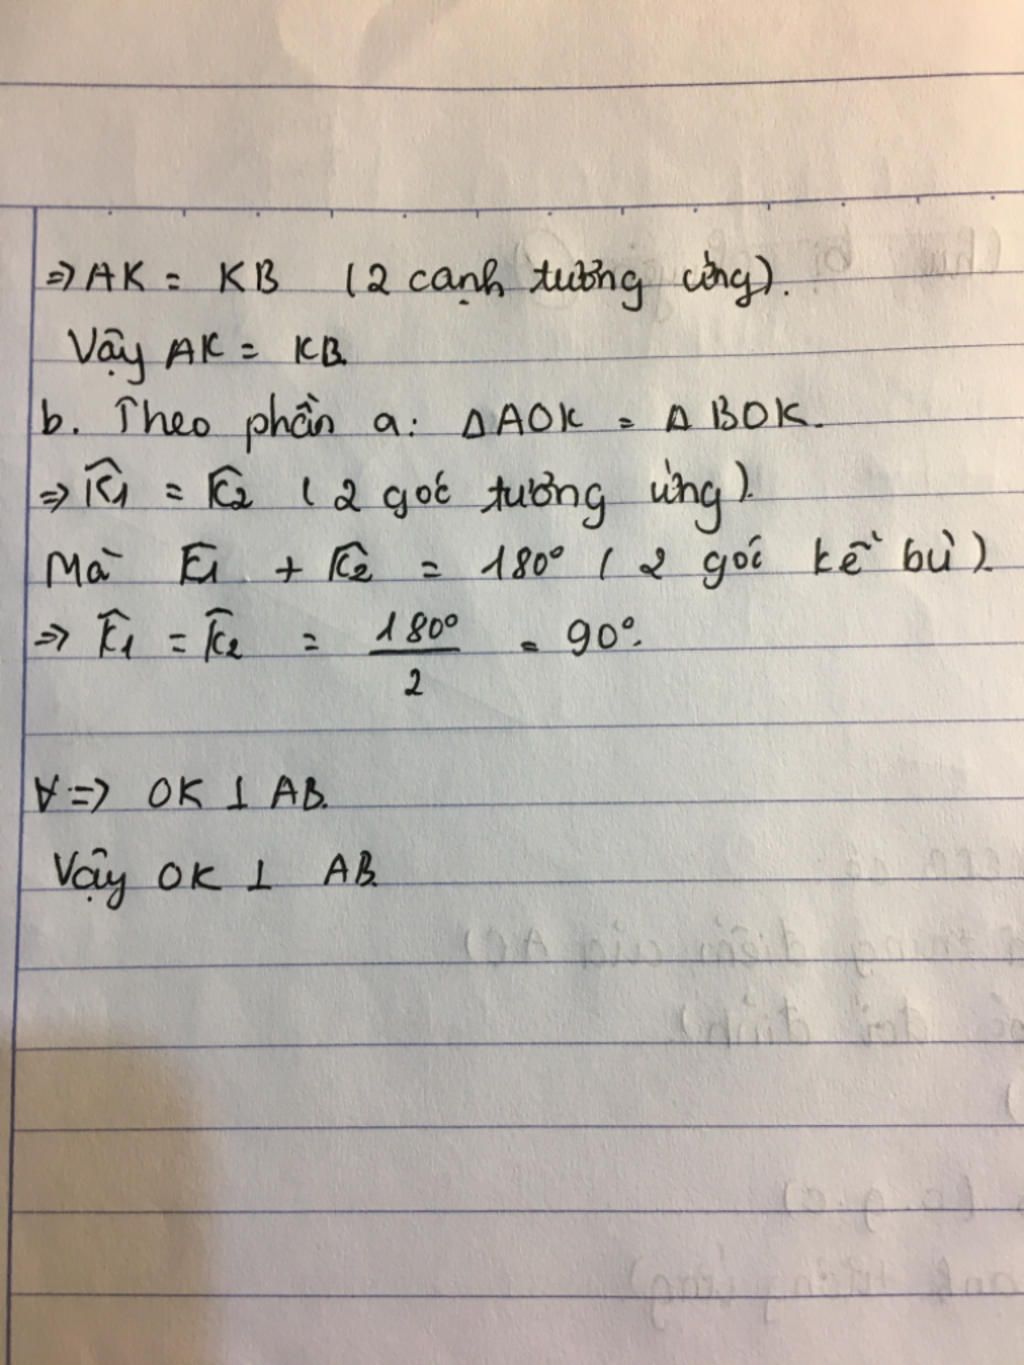 => AK = KB (2 cạnh tương ứng).
Vậy AK = KB.
b. Theo phần a: ΔAOK = ΔBOK.
=> K̂1 = K̂2 (2 góc tương ứng).
Mà K̂1 + K̂2 = 180° (2 góc kề bù).
=> K̂1 = K̂2 = 180°/2 = 90°.
∀ => OK ⊥ AB.
Vậy OK ⊥ AB.